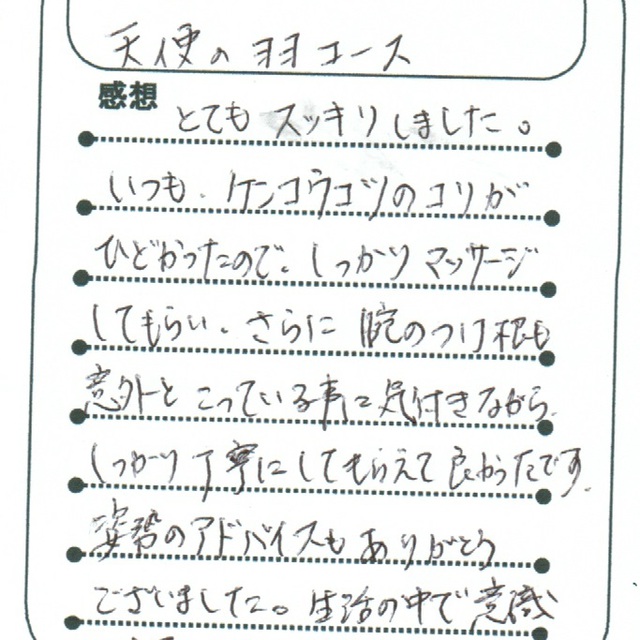 天使の羽コース
感想
とてもスッキリしました。
いつも、ケンコウコツのコリが
ひどかったので、しっかりマッサージ
してもらい、さらに腕のつけ根も
意外とこっている事に気付きながら、
しっかり丁寧にしてもらえて良かったです。
姿勢のアドバイスもありがとう
ございました。生活の中で意識